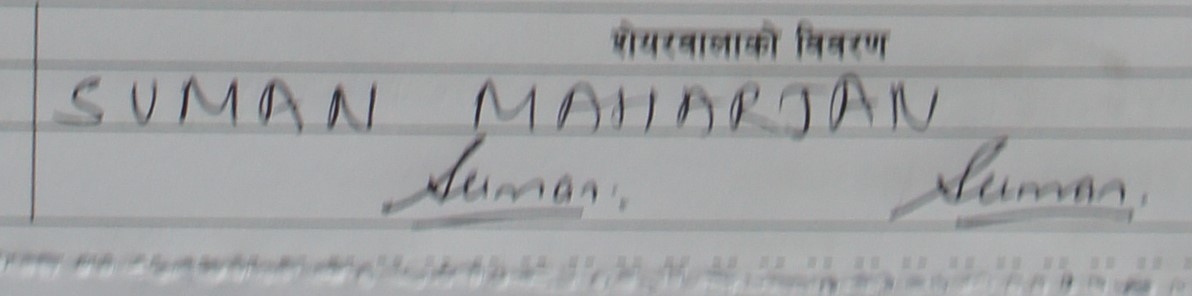 शेयरवालाको विवरण
SUMAN MAHARJAN
Suman. Suman.